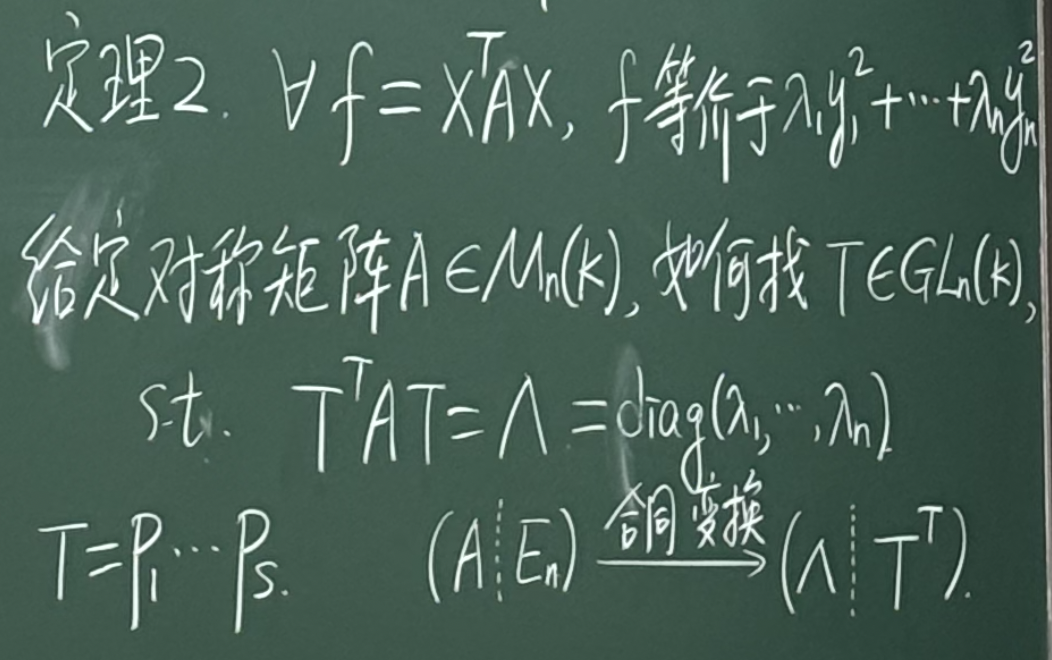 定理2. ∀ f = XᵀAX, f等价于λ₁y₁²+⋯+λₙyₙ²
给定对称矩阵A∈Mₙ(k), 如何找 T∈GLₙ(k),
s.t. TᵀAT = Λ = diag(λ₁,⋯,λₙ).
T=P₁⋯Pₛ. (A┊Eₙ) 合同变换→ (Λ┊Tᵀ).